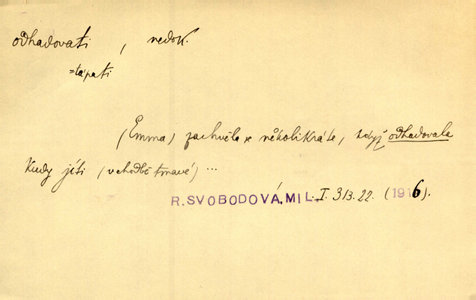 odhadovati, nedok.
=tápati
(Emma) zachvěla se několikráte, když odhadovala
kudy jíti (v chodbě tmavé) ...
R. SVOBODOVÁ, MIL. I. 313.22. (1916).